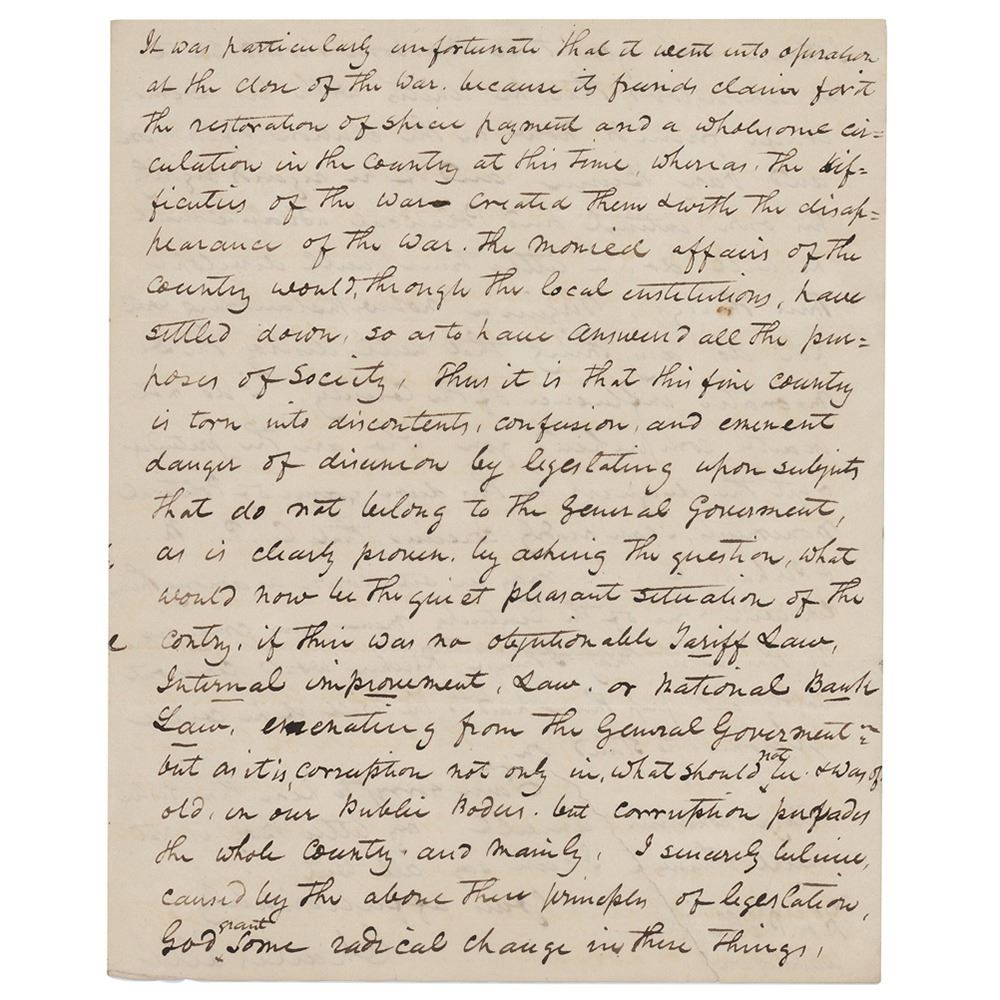 It was particularly unfortunate that it went into operation
at the close of the war. because its friends claim for it
the restoration of specie payment and a wholesome cir=
culation in the country at this time, whereas, the dif=
ficulties of the war created them & with the disap=
pearance of the war. the monied affairs of the
country would, through the local institutions, have
settled down, so as to have answerd all the pur=
poses of Society, Thus it is that this fine country
is torn into discontents, confusion, and eminent
danger of disunion by legeslating upon subjects
that do not belong to the General Goverment,
as is clearly proven. by asking the question, what
would now be the quiet pleasant situation of the
contry, if thire was no objectionable Tariff Law,
Internal improvement, Law. or National Bank
Law, emenating from the General Goverment =
but as it is, corruption not only in, what should not be. & was of
old, in our Public Bodies. but corruption pervades
the whole Country. and mainly, I sincerely believe,
caused by the above three principles of legeslation,
God grant some radical change in these things,